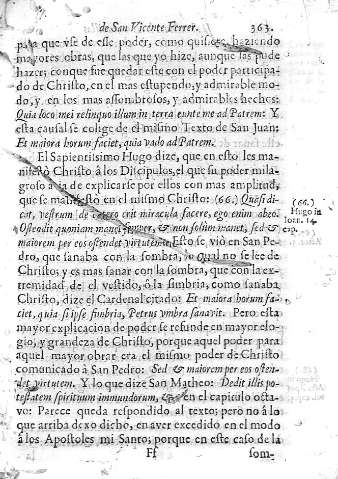 de San Vicente Ferrer. 363.
para que vse de ese poder, como quisiese, haziendo
mayores obras, que las que yo hize, aunque las pude
hazer; conque fue quedar este con el poder participa-
do de Christo, en el mas estupendo, y admirable mo-
do, y en los mas assombrosos, y admirables hechos:
Quia loco mei relinquo illum in terra eunte me ad Patrem: Y
esta causal se colige de el mismo Texto de San Juan:
Et maiora horum faciet, quia vado ad Patrem.
El Sapientissimo Hugo dize, que en esto les ma-
nifestò Christo à los Discipulos, el que su poder mila-
groso à de explicarse por ellos con mas amplitud,
que se manifestò en el mismo Christo: (66.) Quasi di-
cat, vestrum de cætero erit miracula facere, ego enim abeo.
Ostendit quoniam manet semper, & non solùm manet, sed &
maiorem per eos ostendet virtutem. Esto se viò en San Pe-
dro, que sanaba con la sombra, lo qual no se lee de
Christo; y es mas sanar con la sombra, que con la ex-
tremidad de el vestido, ò la fimbria, como sanaba
Christo, dize el Cardenal citado: Et maiora horum fa-
ciet, quia si ipse fimbria, Petrus vmbra sanavit. Pero esta
mayor explicacion de poder se refunde en mayor elo-
gio, y grandeza de Christo, porque aquel poder para
aquel mayor obrar era el mismo poder de Christo
comunicado à San Pedro: Sed & maiorem per eos osten-
det virtutem. Y lo que dize San Matheo: Dedit illis po-
testatem spirituum immundorum, & en el capitulo octa-
vo: Parece queda respondido al texto; pero no à lo
que arriba dexo dicho, en aver excedido en el modo
à los Apostoles mi Santo; porque en este caso de la
Ff som-
(66.)
Hugo in
Ioan. 14.
exp.